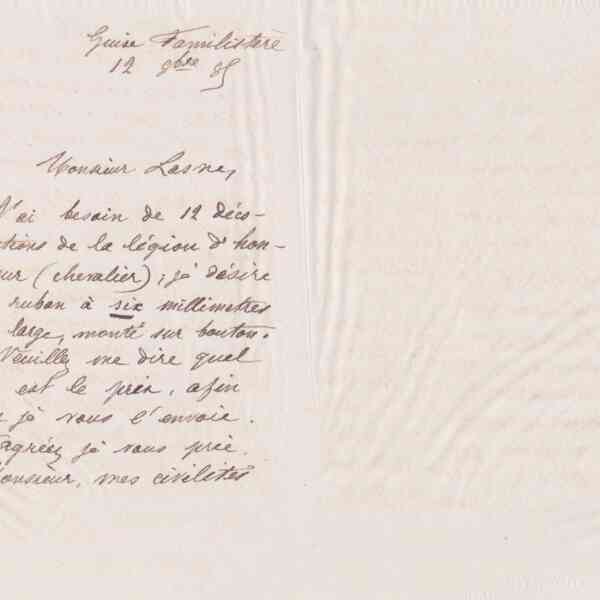 Guise Familistère
12 9bre 85
Monsieur Lasne,
J'ai besoin de 12 déco-
ctions de la légion d'hon-
eur (chevalier); je désire
ruban à six millimètres
large, monté sur bouton.
Veuillez me dire quel
est le prix, afin
je vous l'envoie.
agréez je vous prie,
onsieur, mes civilités